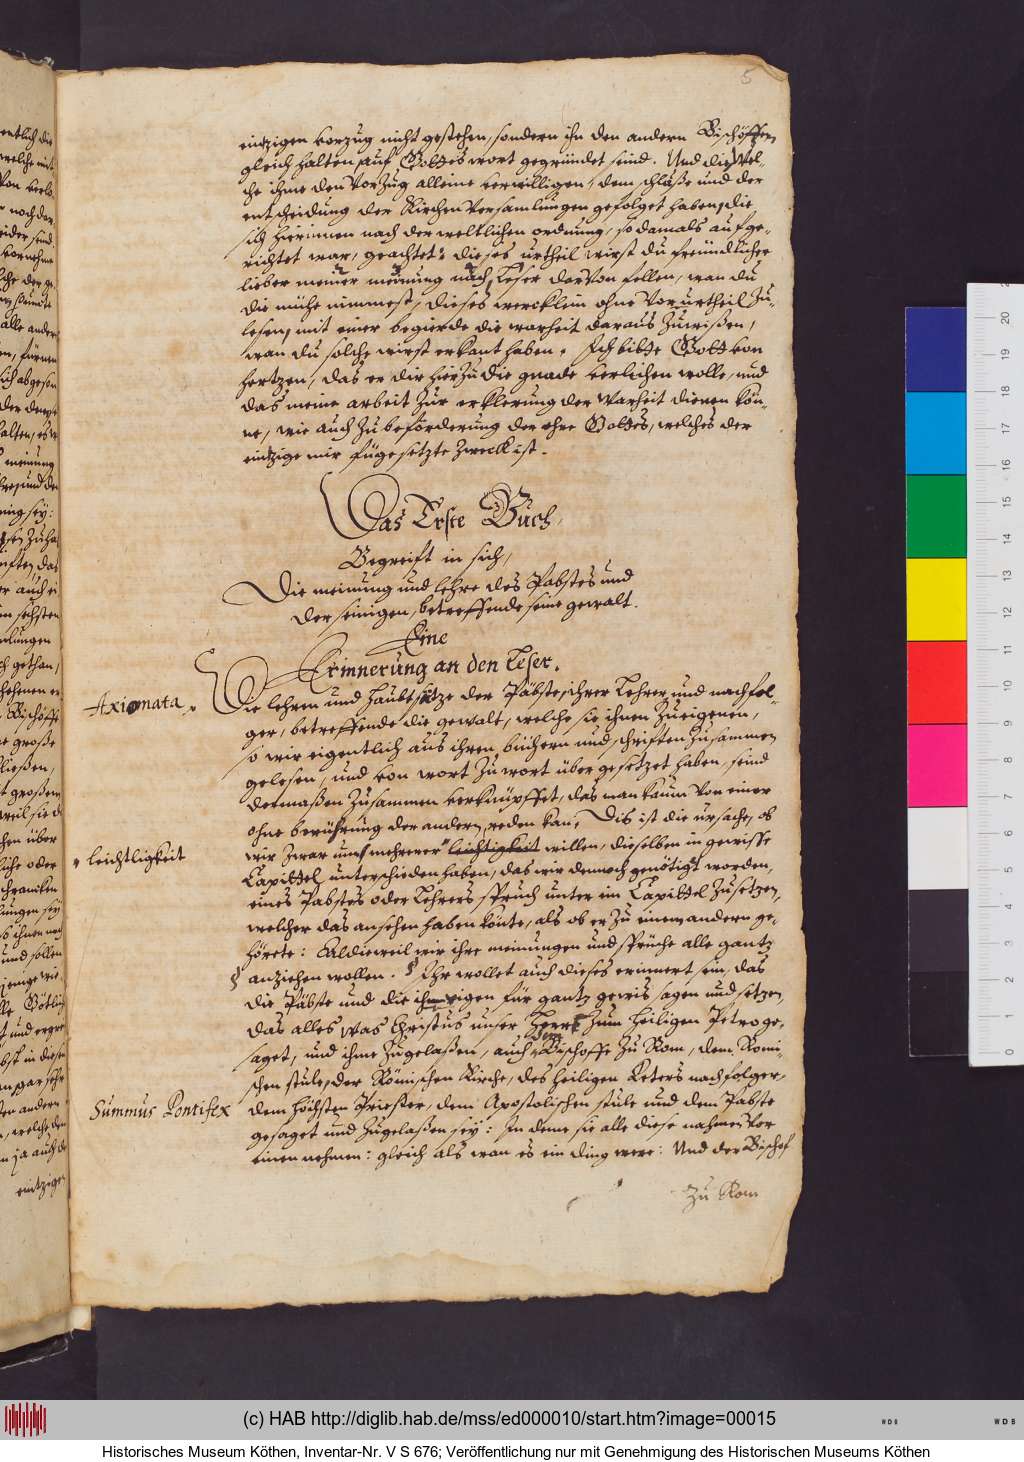 5
eintzigen vorzug nicht gestehen, sondern ihn den andern Bischöffen
gleich halten, auf Gottes wort gegründet seind. Und die wel-
che ihme den Vorzug alleine verwilligen, dem schluße und der
entscheidung der Kirchen Versamlungen gefolget haben, die
sich hierinnen nach der weltlichen ordnung, so damals aufge-
richtet war, geachtet: dieses urtheil wirst du freundlicher
lieber meiner meinung nach Leser darvon fellen, wan du
die mühe nimmest, dieses wercklein ohne Vorurtheil zu-
lesen, mit einer begierde die warheit daraus zuwißen,
wan du solche wirst erkant haben. Ich bitte Gott von
hertzen, das er dir hierzu die gnade verlichen wolle, und
das meine arbeit zur erklerung der warheit dienen kön-
ne, wie auch zu beförderung der ehre Gottes, welches der
eintzige mir fürgesetzte zweck ist.
Das Erste Buch,
Begreift in sich,
Die meinung und lehre des Pabstes und
der seinigen, betreffende seine gewalt.
Eine
Erinnerung an den Leser.
Axiomata
Die lehren und haubtsätze der Päbste, ihrer Lehrer, und nachfol-
ger, betreffende die gewalt, welche sie ihnen zueigenen,
so wir eigentlich aus ihren büchern und schriften zusammen
gelesen, und von wort zu wort übergesetzet haben, seind
dermaßen zusammen verknüpffet, das man kaum von einer
ohne berührung der andern reden kan. Dis ist die ursache, ob
leichtligkeit
wir zwar umb mehrerer leichtigkeit willen, dieselben in gewisse
Capittel unterschieden haben, das wir dennoch genötigt worden,
eines Pabstes oder Lehrers spruch unter ein Capittel zusetzen,
welcher das ansehen haben könte, als ob er zu einem andern ge-
hörete: Aldieweil wir ihre meinungen und sprüche alle gantz
anziehen wollen. Ihr wollet auch dieses erinnert sein, das
die Päbste und die ihrigen für gantz gewis sagen und setzen,
das alles was Christus unser Herr zum heiligen Petro ge-
saget, und ihme zugelaßen, auch dem Bischoffe zu Rom, dem Römi-
schen stule, der Römischen Kirche, des heiligen Peters nachfolger,
Summus Pontifex
dem höchsten Priester, dem Apostolischen stule und dem Pabste
gesaget und zugelaßen sey: In deme sie alle diese nahmen vor
einen nehmen: gleich als wan es ein ding were: Und der Bischof
zu Rom
(c) HAB http://diglib.hab.de/mss/ed000010/start.htm?image=00015
Historisches Museum Köthen, Inventar-Nr. V S 676; Veröffentlichung nur mit Genehmigung des Historischen Museums Köthen